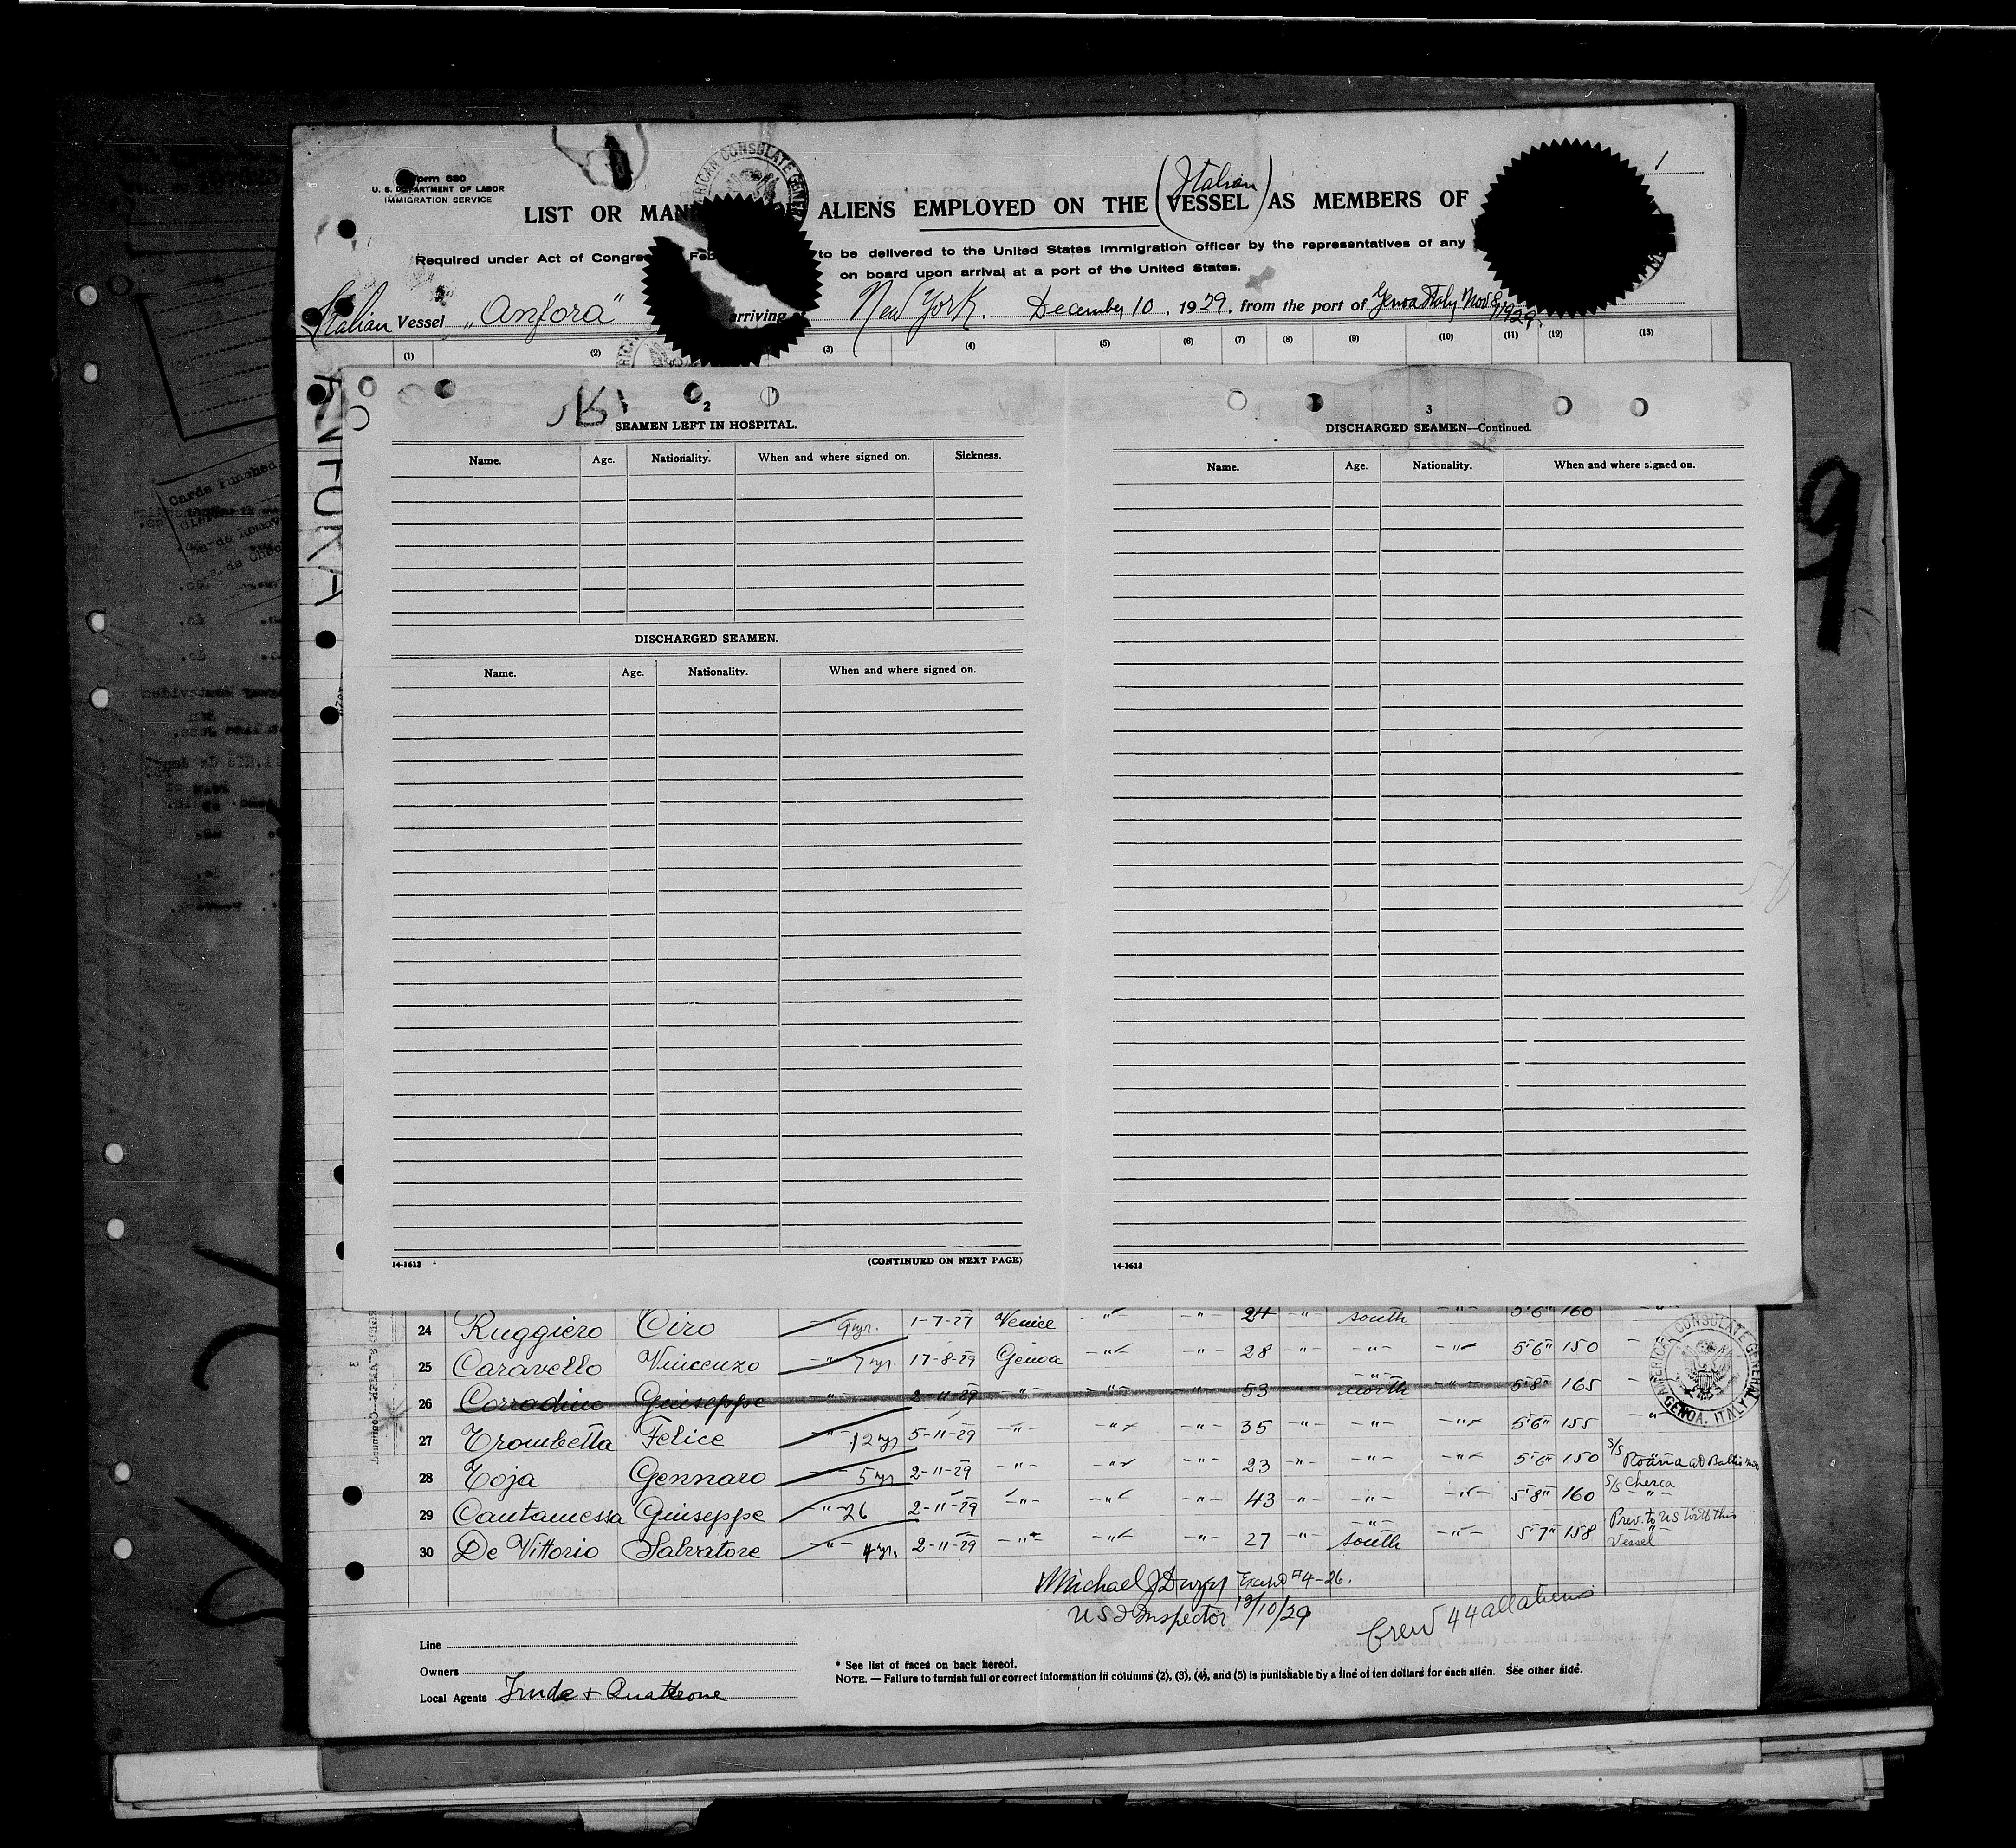 Form 680
U. S. DEPARTMENT OF LABOR
IMMIGRATION SERVICE
1
AMERICAN CONSULATE GENERAL
(Italian)
LIST OR ALIENS EMPLOYED ON THE VESSEL AS MEMBERS OF
Required under Act of Congress to be delivered to the United States Immigration officer by the representatives of any
on board upon arrival at a port of the United States.
Italian Vessel "Anfora" arriving New York. December 10, 1929, from the port of Genoa Italy Nov 8, 1929.
(1) (2) (3) (4) (5) (6) (7) (8) (9) (10) (11) (12) (13)
ANFORA
2
SEAMEN LEFT IN HOSPITAL.
Name. Age. Nationality. When and where signed on. Sickness.
DISCHARGED SEAMEN.
Name. Age. Nationality. When and where signed on.
14-1613 (CONTINUED ON NEXT PAGE)
3
DISCHARGED SEAMEN—Continued.
Name. Age. Nationality. When and where signed on.
14-1613
9
24 Ruggiero Ciro 9 yr. 1-7-27 Venice -"- -"- 24 -"- south -"- 5'6" 160 -"-
25 Caravello Vincenzo -"- 7 yr. 17-8-29 Genoa -"- -"- 28 -"- -"- -"- 5'6" 150
26 Corradino Giuseppe -"- 2-11-29 -"- -"- -"- 53 -"- north -"- 5'8" 165
27 Trombetta Felice -"- 12 yr 5-11-29 -"- -"- -"- 35 -"- -"- -"- 5'6" 155 -"-
28 Toja Gennaro -"- 5 yr 2-11-29 -"- -"- -"- 23 -"- -"- -"- 5'6" 150 S/S
29 Cantamessa Giuseppe -"- 26 2-11-29 -"- -"- -"- 43 -"- -"- -"- 5'8" 160 S/S Cherca
30 De Vittorio Salvatore -"- 4 yr. 2-11-29 -"- -"- -"- 27 -"- south -"- 5'7" 158 Prev. to US with this Vessel
AMERICAN CONSULATE GENERAL
GENOA, ITALY
Michael J Exc #4-26.
USI Inspector 12/10/29
Crew 44 all aliens
Line
Owners
Local Agents
* See list of races on back hereof.
NOTE. — Failure to furnish full or correct information in columns (2), (3), (4), and (5) is punishable by a fine of ten dollars for each alien. See other side.
Cards Punched